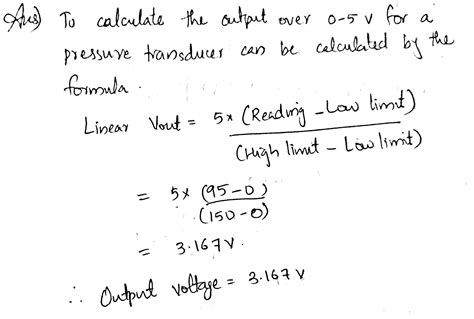 Ans) To calculate the output over 0-5 V for a
pressure transducer can be calculated by the
formula.
Linear Vout = 5x (Reading - Low limit)
(High limit - Low limit)
= 5x (95-0)
(150-0)
= 3.167V.
∴ Output voltage = 3.167 V